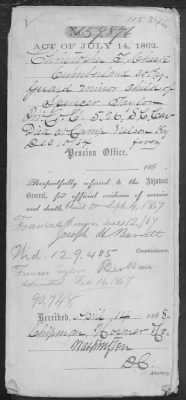 115.346
No 159876
ACT OF JULY 14, 1862.
Christopher T. Cheek
Cumberland Co Ky
Guard minor child of
Spencer Taylor
Pri Co C. 5.26, U.S.C. Cav
Died at Camp Nelson Ky
Dec 10 '64
Pension Office,
186
Respectfully referred to the Adjutant
General, for official evidence of service
and death.
Sept 10 1867
Frances
Joseph H Barrett
Commissioner.
Wid. 129.485
Frances Taylor
admitted Feb 14 1867
90,748
Received, 14 1868
Chipman Hosmer & Co.
Washington
D.C.
Attorney